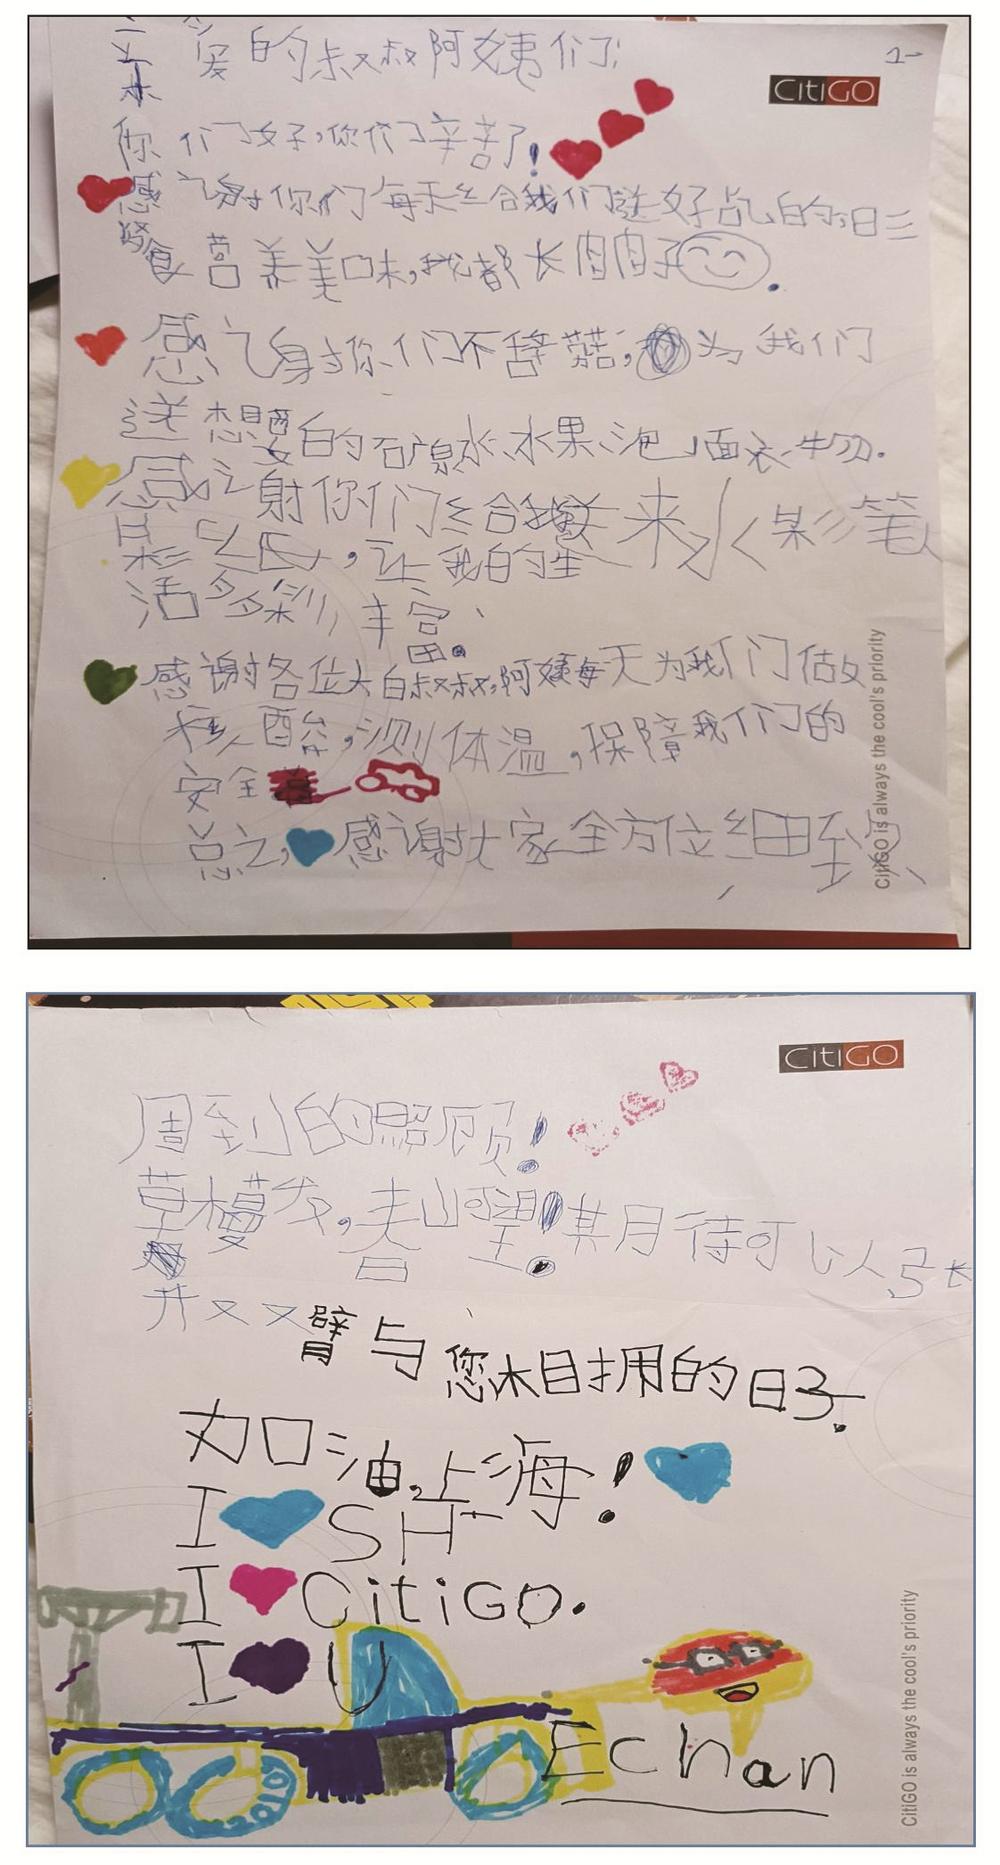 亲爱的叔叔阿姨们：
1-
CitiGO
你们好，你们辛苦了！
感谢你们每天给我们送好吃的，日三
餐营养美味，我都长肉肉了。
感谢你们不辞辛苦，为我们
送想要的矿泉水、水果、泡面、衣物.
感谢你们给我送来水彩笔
，让我的生
活多多彩，丰富、.
感谢各位大白叔叔，阿姨每天为我们做
核酸，测体温，保障我们的
安全
总之，感谢大家全方位细致
CitiGO is always the cool's priority
CitiGO
周到的照顾！
草木蔓发，春山可望.其月待可以
双臂与您相拥的日子.
加油，上海！
I SH
I CitiGO.
I U
Echan
CitiGO is always the cool's priority